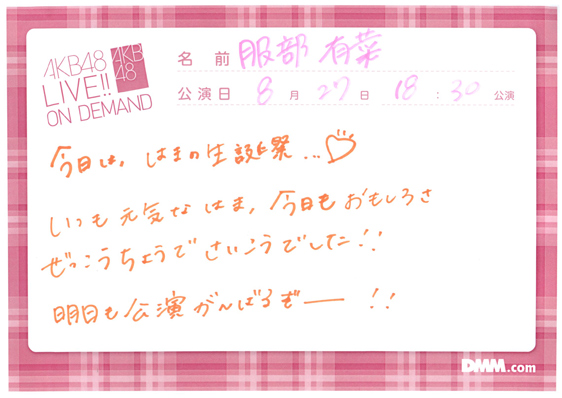 AKB48
LIVE!!
ON DEMAND
AKB
48
名前 服部有菜
公演日 8月27日 18:30公演
今日は、はまの生誕祭...♡
いつも元気なはま、今日もおもしろさ
ぜっこうちょうでさいこうでした!!
明日も公演がんばるぞー!!
DMM.com